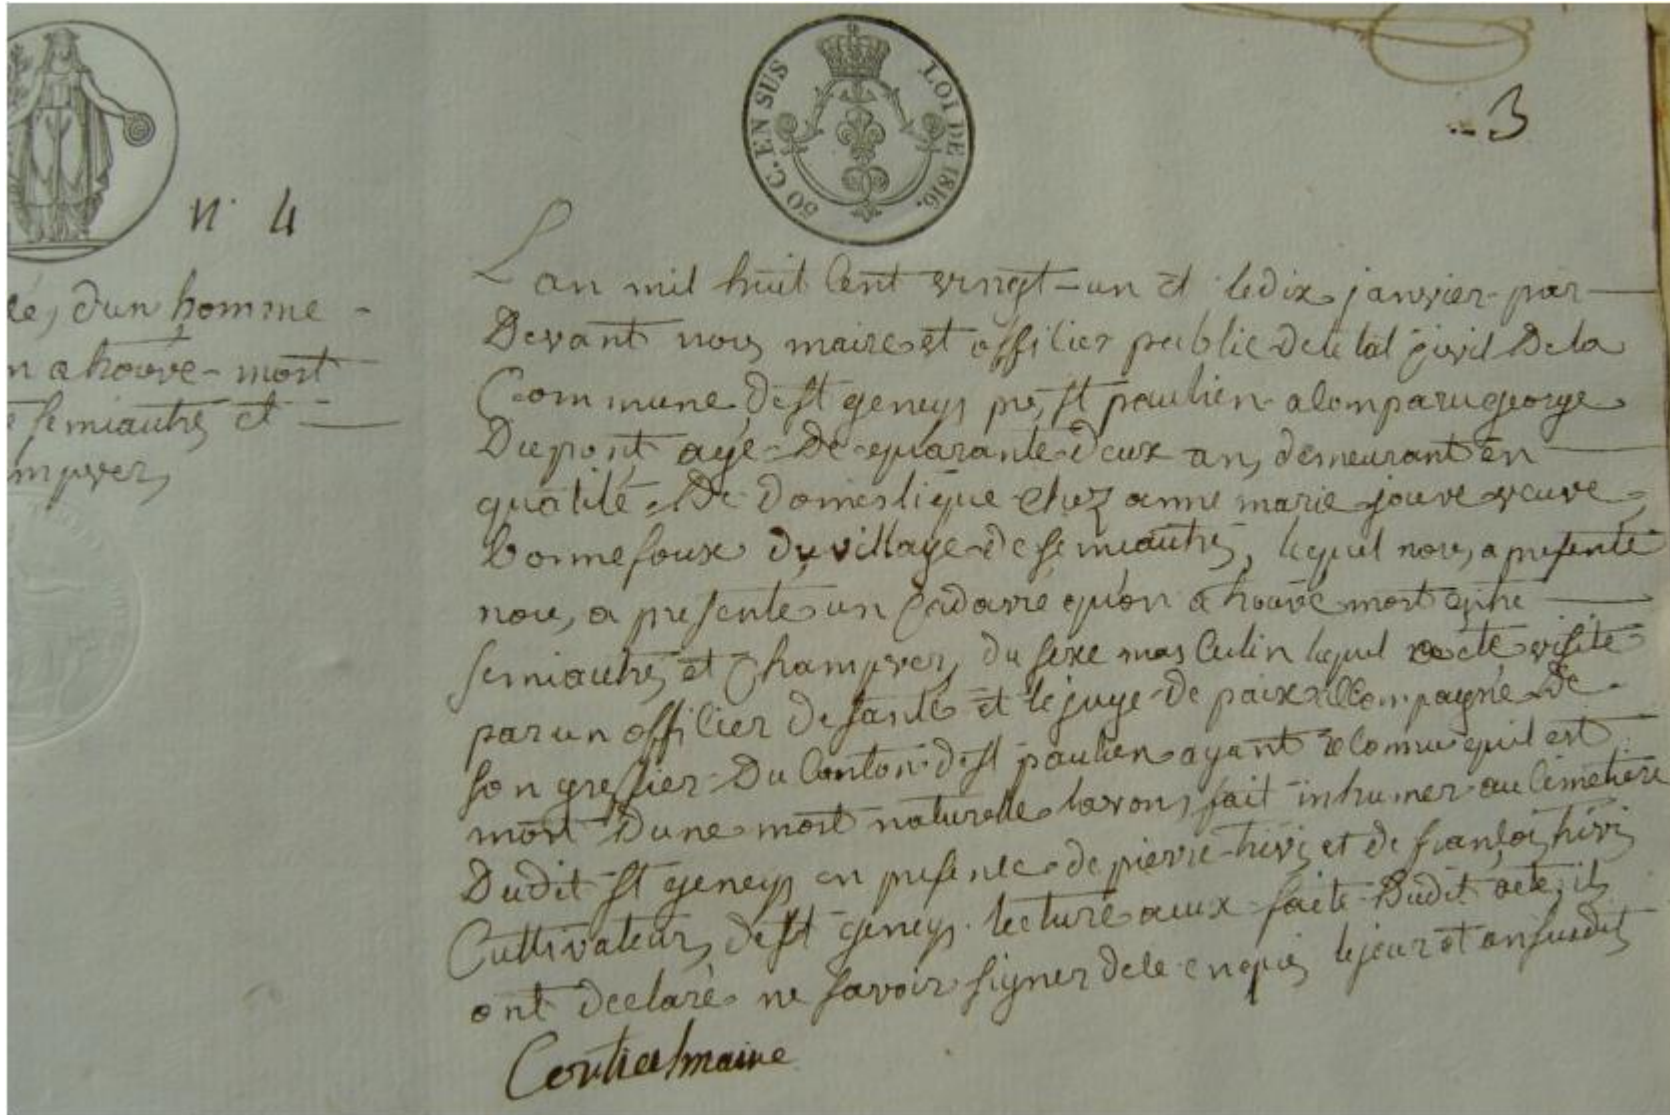 50 C. EN SUS LOI DE 1816.
3
n. 4
cé, d'un homme
n a trouvé mort
semiautres et
L'an mil huit cent vingt-un et le dix janvier par
Devant nous maire et officier public de letat civil De la
Commune de St geneys près St paulien a comparu george
Dupont agé De quarante deux ans demeurant en
qualité De Domestique chez anne marie jouve veuve
bonnefoux du village de semiautres, lequel nous a presenté
nous a presenté un Cadavre qu'on a trouvé mort entre
semiautres et Champvers, du sexe masculin lequel a eté visité
par un officier de santé et le juge de paix accompagné De
son greffier Du Canton de St paulien ayant reconnu quil est
mort Dune mort naturelle lavons fait inhumer au Cimetiere
Dudit St geneys en presence de pierre et de françois
Cultivateurs de St geneys. lecture a eux faite Dudit acte, ils
ont declaré ne savoir signer de ce enquis le jour et an susdits
maire